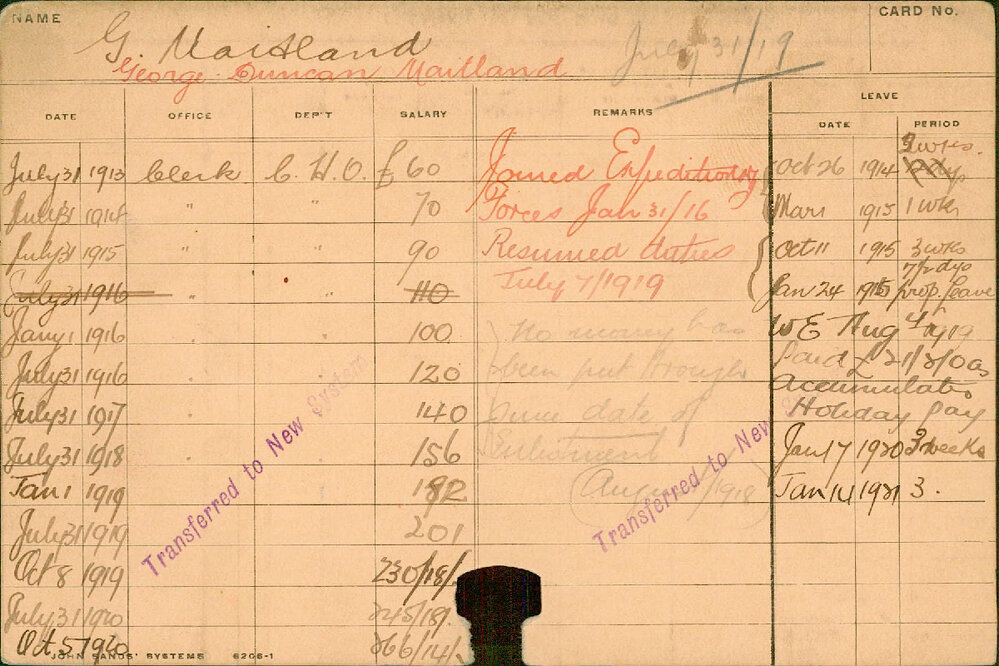 NAME
CARD No.
G. Maitland
July 31/19
George Duncan Maitland
DATE OFFICE DEP'T SALARY REMARKS LEAVE
DATE PERIOD
July 31 1913 Clerk C. H. O. £ 60 Joined Expeditionary Oct 26 1914 2 wks.
July 31 1914 " " 70 Forces Jan 31/16 Mar 1 1915 1 wk
July 31 1915 " " 90 Resumed duties Oct 11 1915 3 wks
July 31 1916 " " 110 July 7/1919 Jan 24 1916 7½ dys prop. leave
Jany 1 1916 " " 100 No money has W E Aug 1919
July 31 1916 " 120 been put through Paid £21/2/0 as
July 31 1917 " 140 since date of Accumulated
Holiday pay
July 31 1918 156 Enlistment Jan 17 1920 3 weeks
Jan 1 1919 182 (Aug 1918) Jan 14 1921 3.
July 31 1919 201
Oct 8 1919 230/18/-
July 31 1920 245/18/-
Oct. 5 1920 266/14/-
Transferred to New System
Transferred to New S
JOHN SANDS' SYSTEMS 6206-1